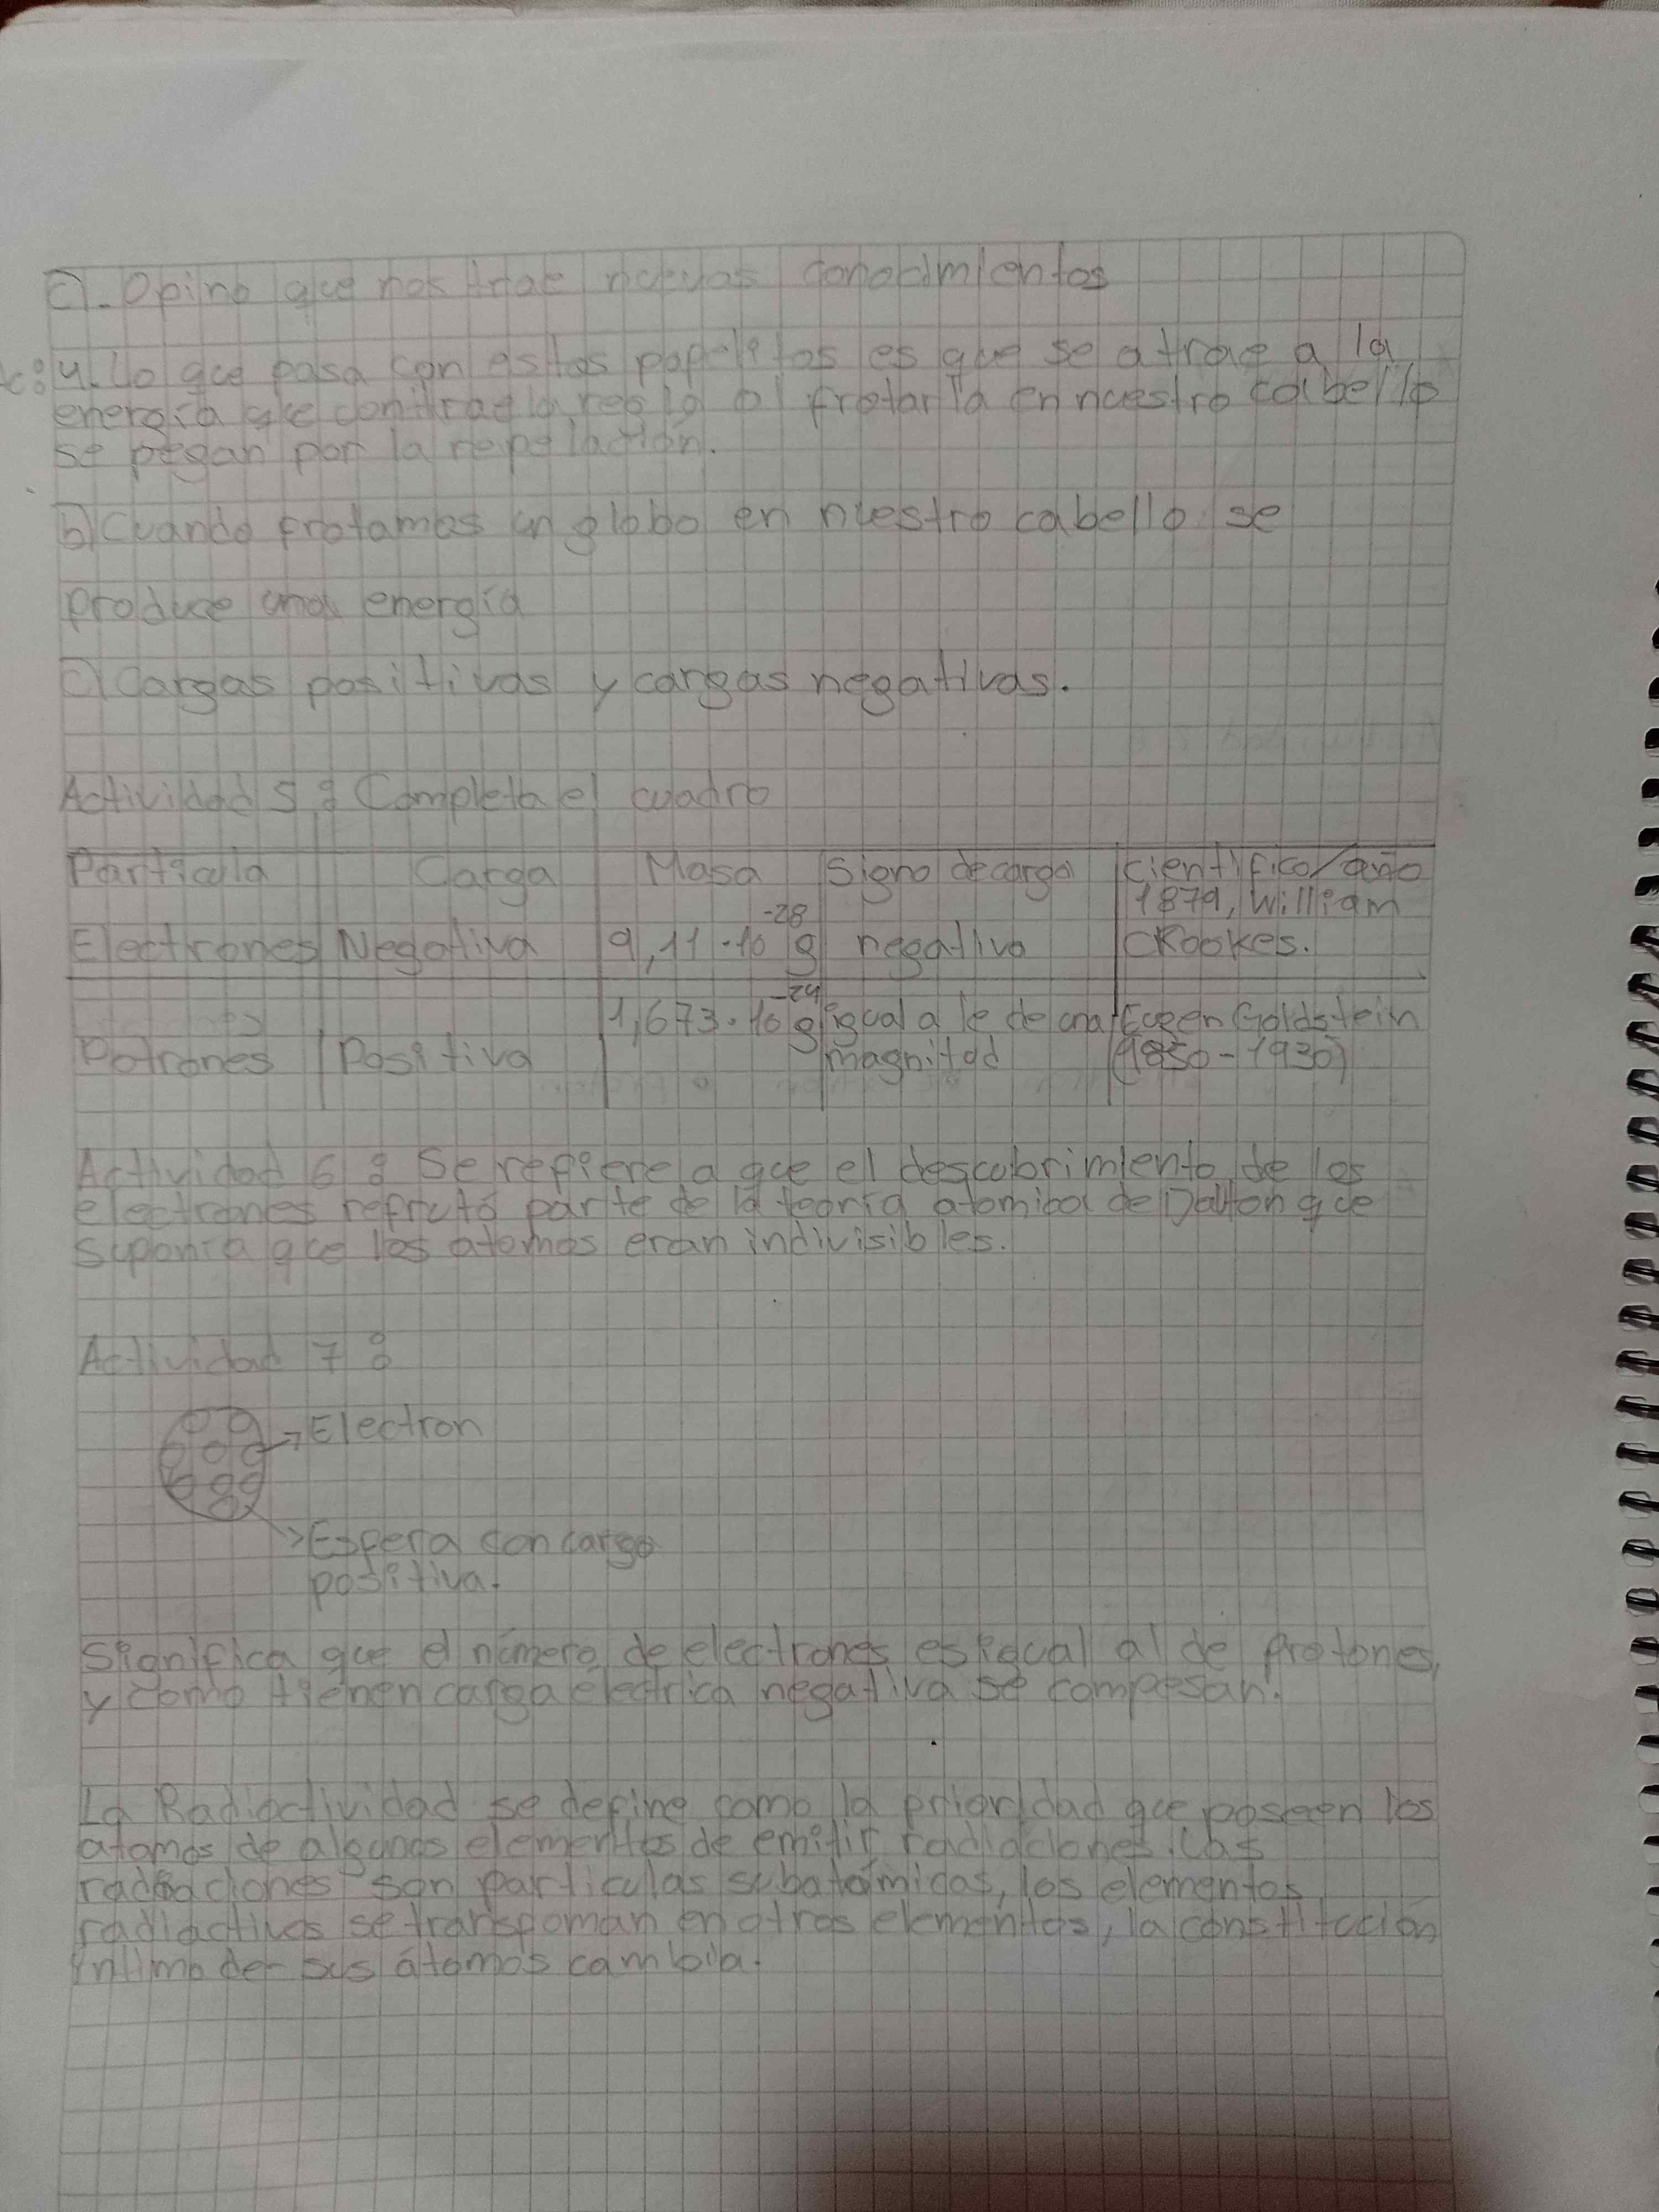 c)-Opino que nos trae nuevos conocimientos
4. Lo que pasa con estos papelitos es que se atrae a la
energía que contrae la regla al frotarla en nuestro cabello
se pegan por la repelación.
b) Cuando frotamos un globo en nuestro cabello se
produce una energía
c) Cargas positivas y cargas negativas.
Actividad 5: Completa el cuadro
Partícula Carga Masa Signo de carga científico/año
Electrones Negativa 9,11·10⁻²⁸g negativo 1879, William
CRookes.
Potrones Positiva 1,673·10⁻²⁴g igual a le de una Eugen Goldstein
magnitud (1850-1930)
Actividad 6: Se refiere a que el descubrimiento de los
electrones refrutó parte de la teoría atomica de Dalton que
suponía que los atomos eran indivisibles.
Actividad 7:
Electron
Esfera con carga
positiva.
Significa que el número de electrones es igual al de protones,
y como tienen carga electrica negativa se compesan.
La Radiactividad se define como la prioridad que poseen los
atomos de algunos elementos de emitir radiaciones. Las
radiaciones son particulas subatómicas, los elementos
radiactivos se transfoman en otros elementos, la constitución
íntima de sus átomos cambia.